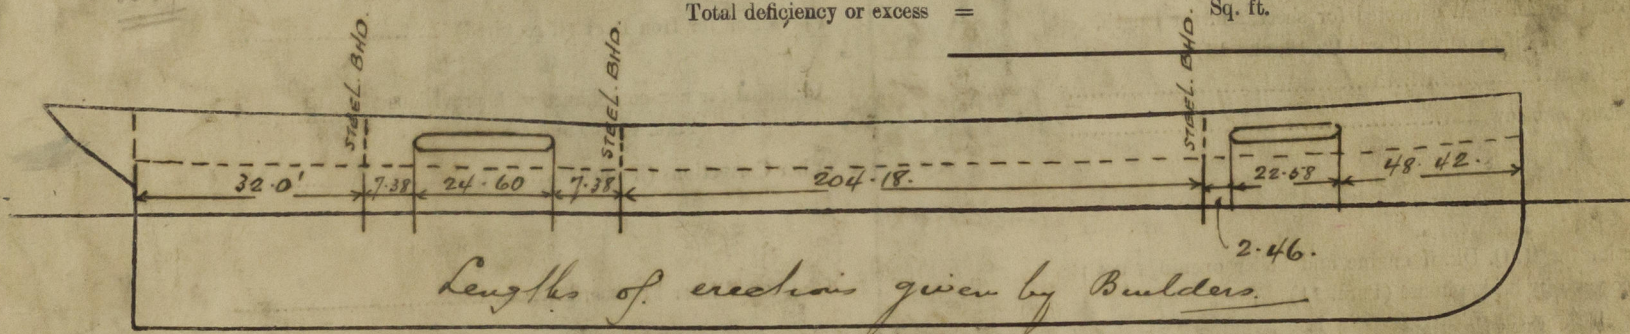 Total deficiency or excess = Sq. ft.
STEEL. BHD.
STEEL. BHD.
STEEL. BHD.
32.0'
7.38
24.60
7.38
204.18.
22.58
48.42.
2.46.
Lengths of erections given by Builders.